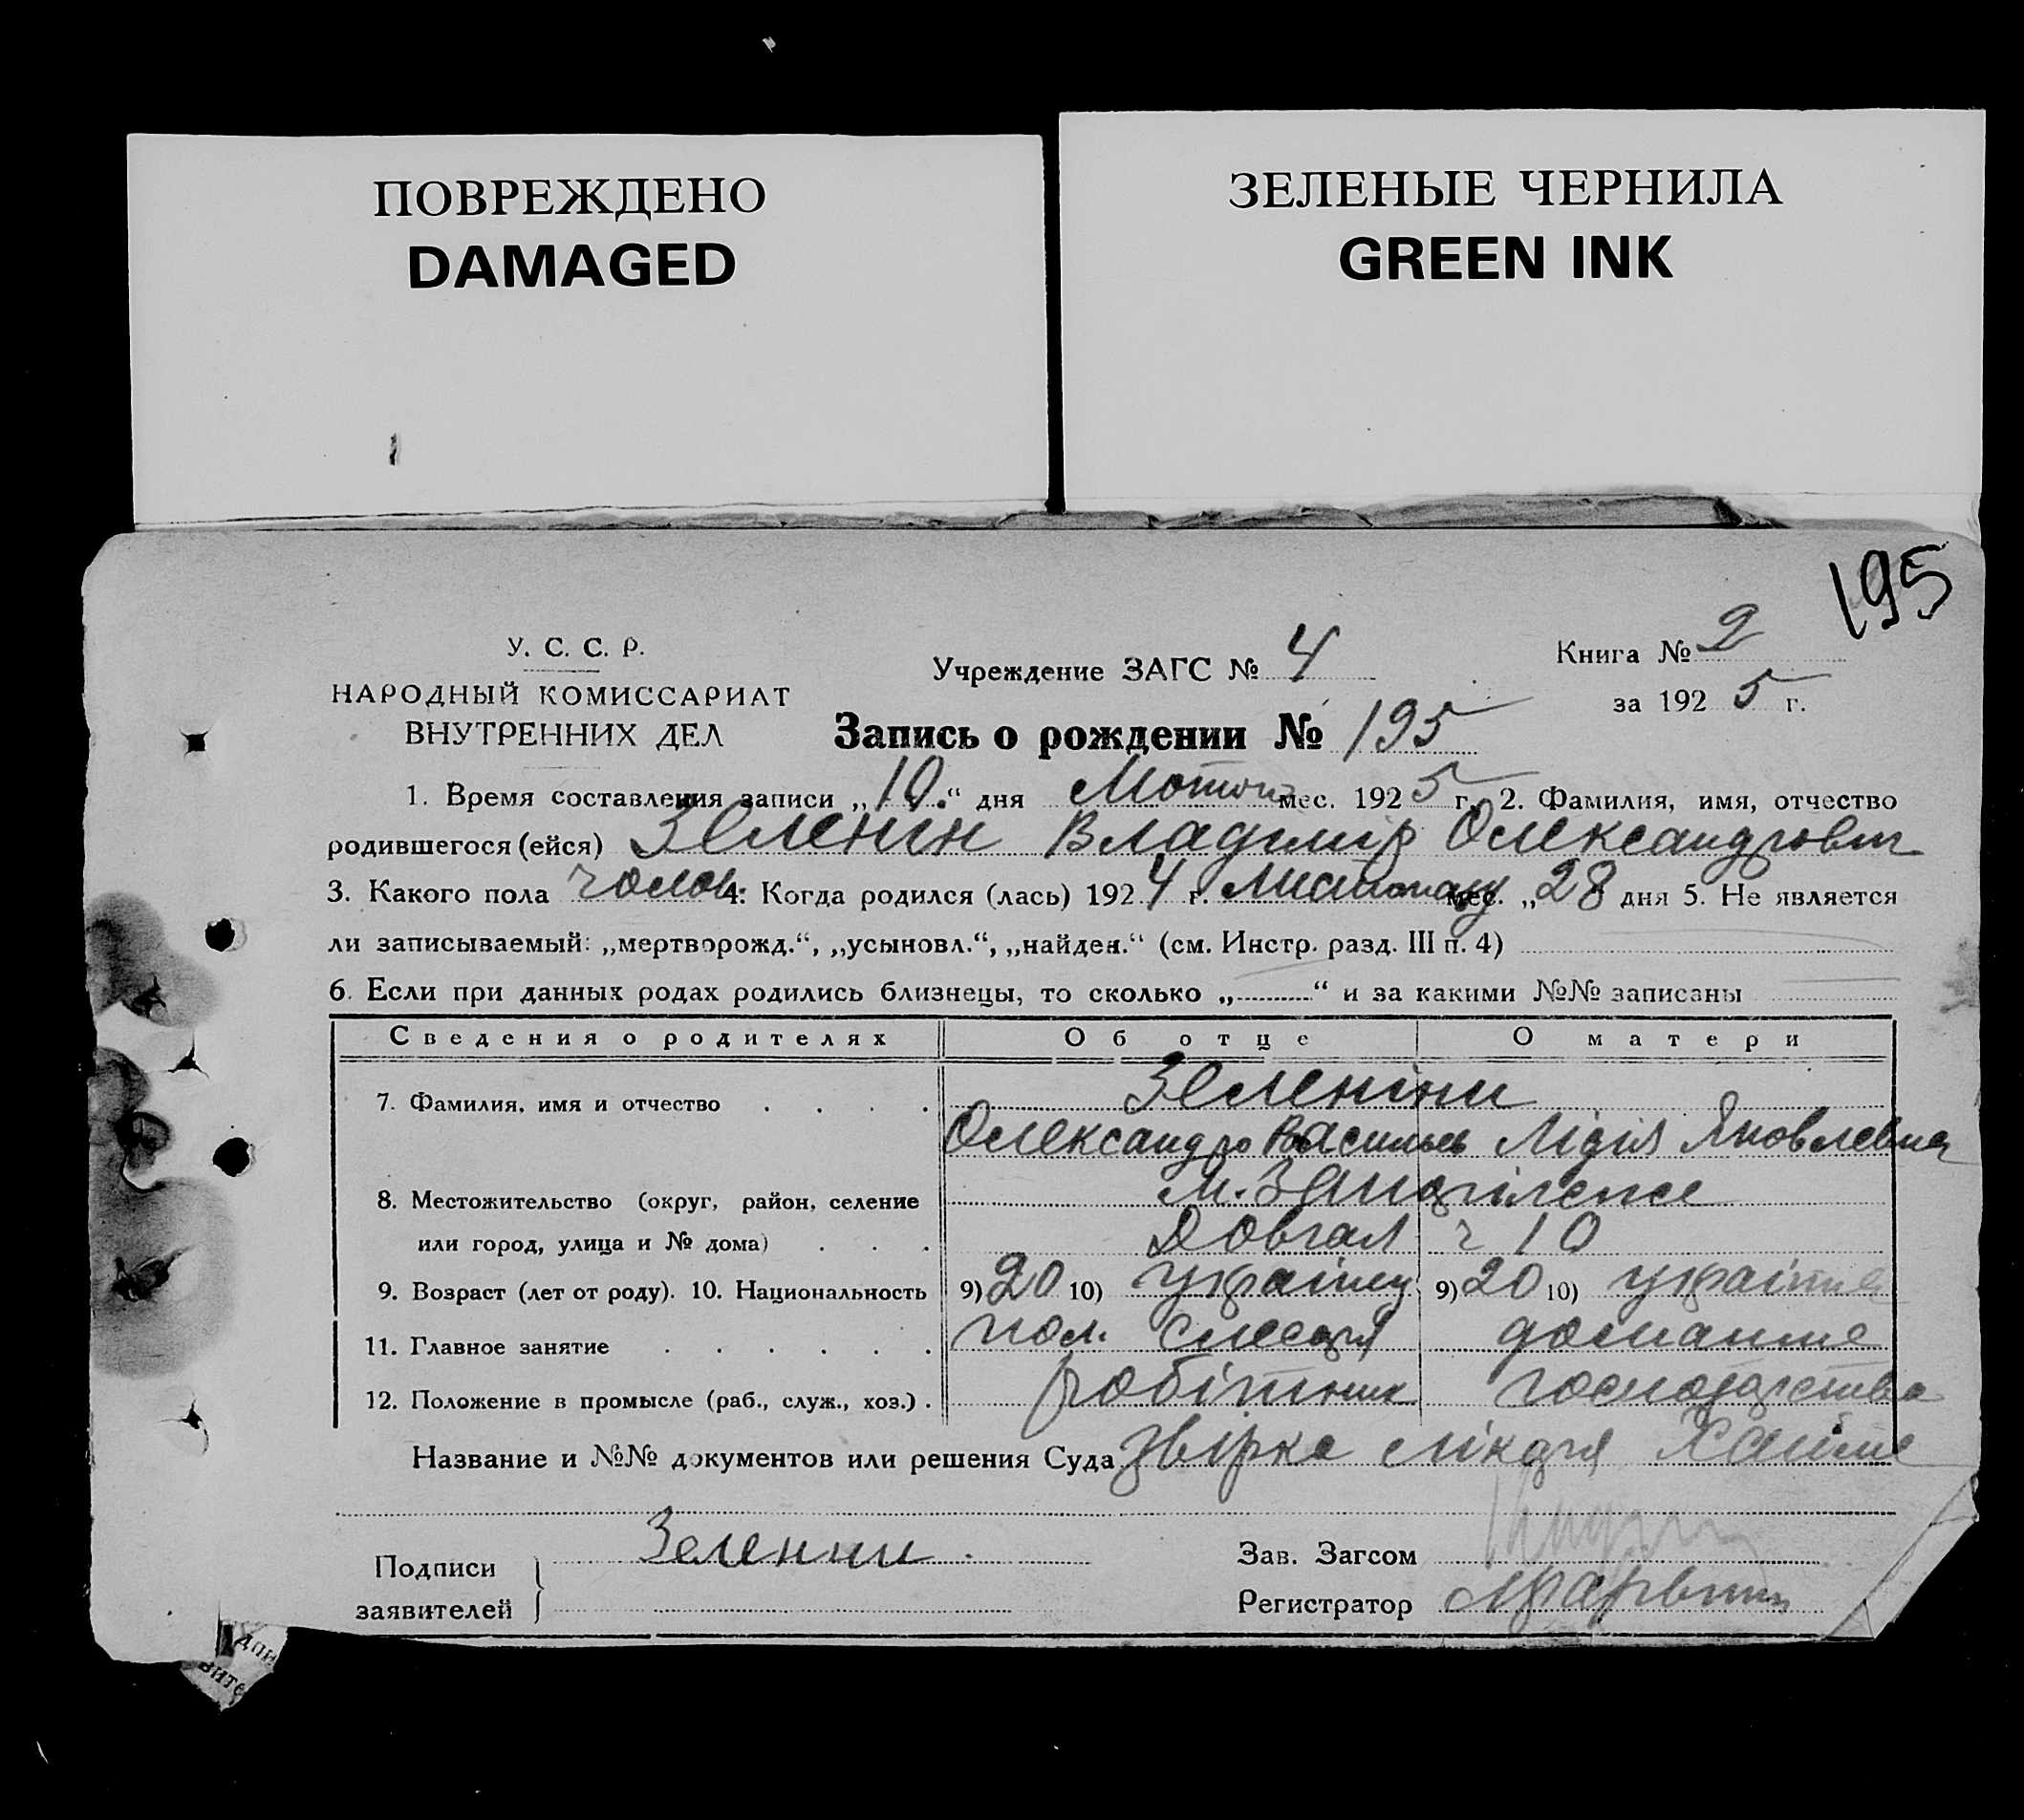 ПОВРЕЖДЕНО
DAMAGED
ЗЕЛЕНЫЕ ЧЕРНИЛА
GREEN INK
195
У. С. С. Р.
НАРОДНЫЙ КОМИССАРИАТ
ВНУТРЕННИХ ДЕЛ
Учреждение ЗАГС № 4
Книга № 2
за 1925 г.
Запись о рождении № 195
1. Время составления записи „10.“ дня мес. 1925 г. 2. Фамилия, имя, отчество
родившегося (ейся) Зеленин Владимір Олександрович
3. Какого пола чолов. 4. Когда родился (лась) 1924 г. Листопаду мес. „28 дня 5. Не является
ли записываемый: „мертворожд.“, „усыновл.“, „найден.“ (см. Инстр. разд. III п. 4)
6. Если при данных родах родились близнецы, то сколько „..........“ и за какими №№ записаны
Сведения о родителях Об отце О матери
7. Фамилия, имя и отчество Зеленіни
Олександро Васильев Лідія Яковлевна
8. Местожительство (округ, район, селение
или город, улица и № дома) Довгал ч 10
9. Возраст (лет от роду). 10. Национальность 9) 20 10) україн 9) 20 10) україн
11. Главное занятие домашнє
12. Положение в промысле (раб., служ., хоз.) робітник господарства
Название и №№ документов или решения Суда лікаря
Подписи
заявителей
Зеленин
Зав. Загсом
Регистратор